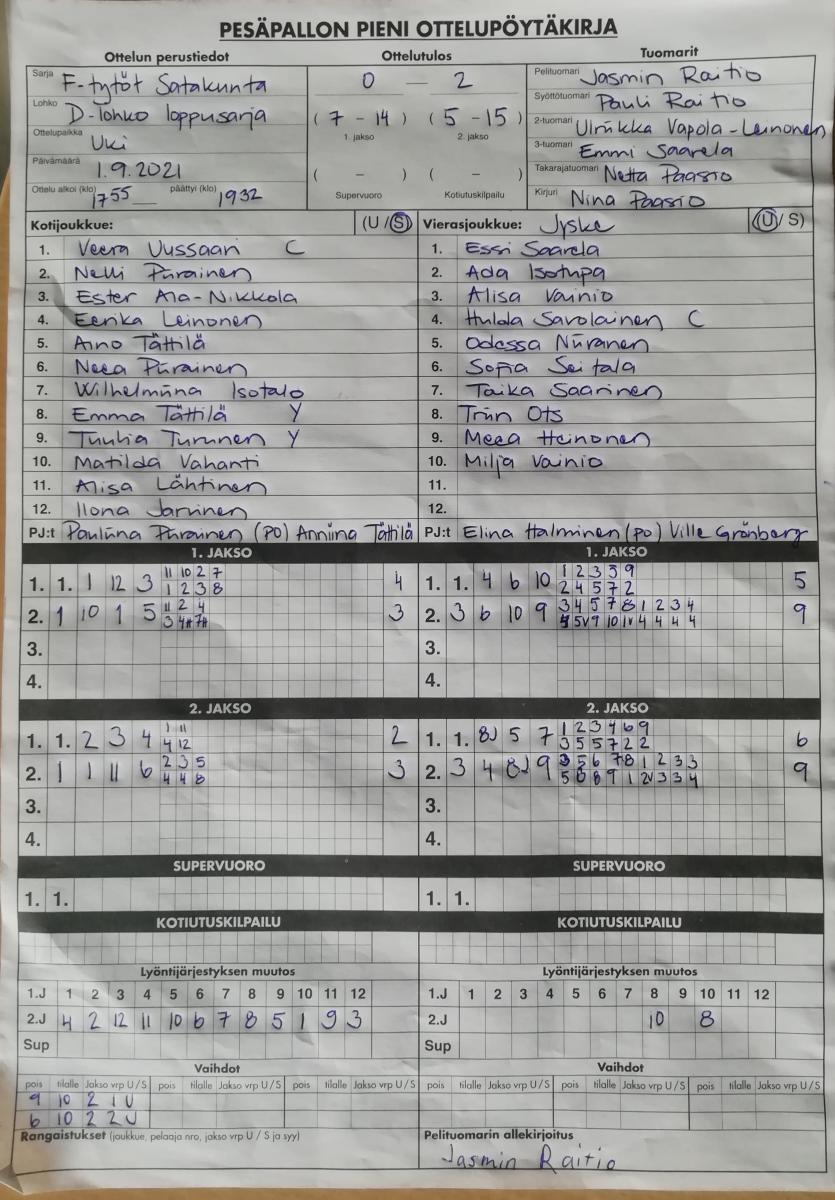 PESÄPALLON PIENI OTTELUPÖYTÄKIRJA
Ottelun perustiedot Ottelutulos Tuomarit
Sarja F-tytöt Satakunta
Lohko D-lohko loppusarja
Ottelupaikka Uki
Päivämäärä 1.9.2021
Ottelu alkoi (klo) 1755 päättyi (klo) 1932
0 — 2
( 7 - 14 ) ( 5 - 15 )
1. jakso 2. jakso
( - ) ( - )
Supervuoro Kotiutuskilpailu
Pelituomari Jasmin Raitio
Syöttötuomari Pauli Raitio
2-tuomari Ulriikka Vapola-Leinonen
3-tuomari Emmi Saarela
Takarajatuomari Netta Paasio
Kirjuri Nina Paasio
Kotijoukkue: (U / S)
1. Veera Uussaari C
2. Nelli Piirainen
3. Ester Ala-Nikkola
4. Eerika Leinonen
5. Aino Tättilä
6. Neea Piirainen
7. Wilhelmiina Isotalo
8. Emma Tättilä Y
9. Tuulia Turunen Y
10. Matilda Vahanti
11. Alisa Lähtinen
12. Ilona Jarvinen
PJ:t Pauliina Piirainen (PO) Anniina Tättilä
Vierasjoukkue: Jyske (U / S)
1. Essi Saarela
2. Ada Isotupa
3. Alisa Vainio
4. Hulda Savolainen C
5. Odessa Niiranen
6. Sofia Seitala
7. Taika Saarinen
8. Triin Ots
9. Meea Heinonen
10. Milja Vainio
11.
12.
PJ:t Elina Halminen (po) Ville Grönberg
1. JAKSO 1. JAKSO
11 10 2 7
1. 1. 1 12 3 4
1 2 3 8
11 2 4
2. 1 10 1 5 3
3 4# 7#
3.
4.
1 2 3 5 9
1. 1. 4 6 10 5
2 4 5 7 2
3 4 5 7 8 1 2 3 4
2. 3 6 10 9 9
5V 9 10 1V 4 4 4 4
3.
4.
2. JAKSO 2. JAKSO
1 11
1. 1. 2 3 4 2
4 12
2 3 5
2. 1 1 11 6 3
4 4 8
3.
4.
1 2 3 4 6 9
1. 1. 8J 5 7 6
3 5 5 7 2 2
3 5 6 7 8 1 2 3 3
2. 3 4 8J 9 9
5 8 9 1 2V 3 3 4
3.
4.
SUPERVUORO SUPERVUORO
1. 1. 1. 1.
KOTIUTUSKILPAILU KOTIUTUSKILPAILU
Lyöntijärjestyksen muutos Lyöntijärjestyksen muutos
1.J 1 2 3 4 5 6 7 8 9 10 11 12 1.J 1 2 3 4 5 6 7 8 9 10 11 12
2.J 4 2 12 11 10 6 7 8 5 1 9 3 2.J 10 8
Sup Sup
Vaihdot Vaihdot
pois tilalle Jakso vrp U / S pois tilalle Jakso vrp U / S pois tilalle Jakso vrp U / S pois tilalle Jakso vrp U / S pois tilalle Jakso vrp U / S pois tilalle Jakso vrp U / S
9 10 2 1 U
6 10 2 2 U
Rangaistukset (joukkue, pelaaja nro, jakso vrp U / S ja syy) Pelituomarin allekirjoitus
Jasmin Raitio